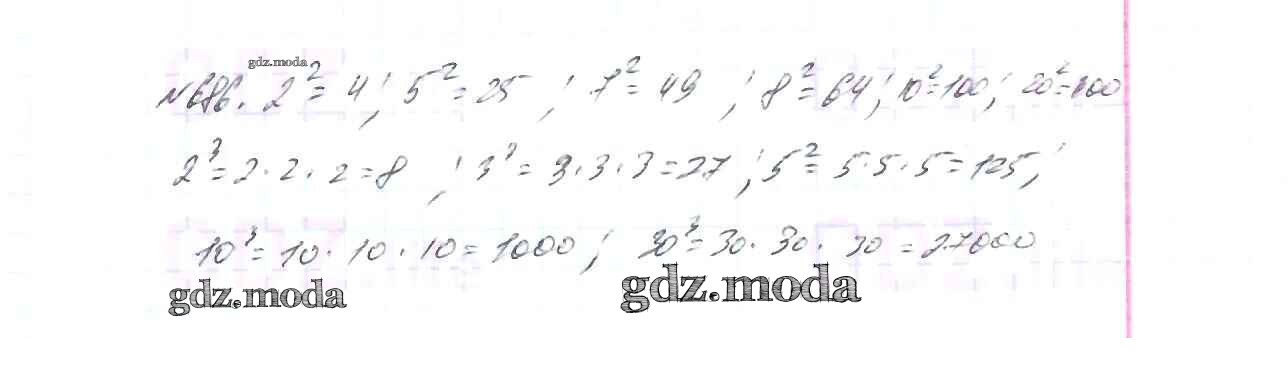 gdz.moda
№686. 2² = 4; 5² = 25; 7² = 49; 8² = 64; 10² = 100; 20² = 400
2³ = 2 · 2 · 2 = 8; 3³ = 3 · 3 · 3 = 27; 5² = 5 · 5 · 5 = 125;
10³ = 10 · 10 · 10 = 1000; 30³ = 30 · 30 · 30 = 27000
gdz.moda gdz.moda